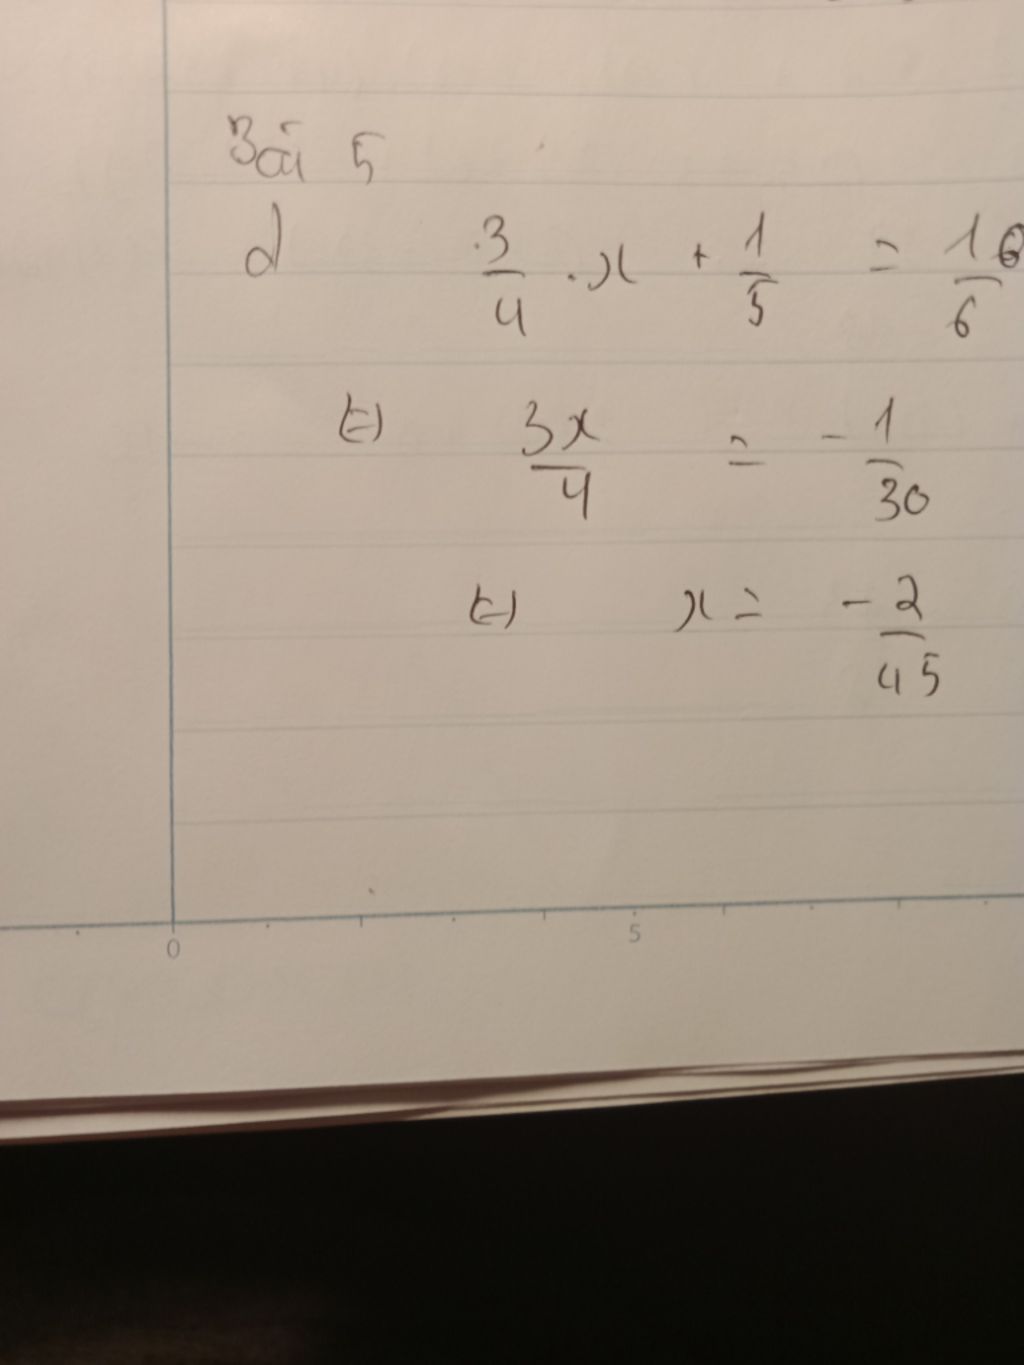 Bài 5
d 3/4 . x + 1/5 = 1/6
(=) 3x/4 = - 1/30
(=) x = - 2/45
0 5